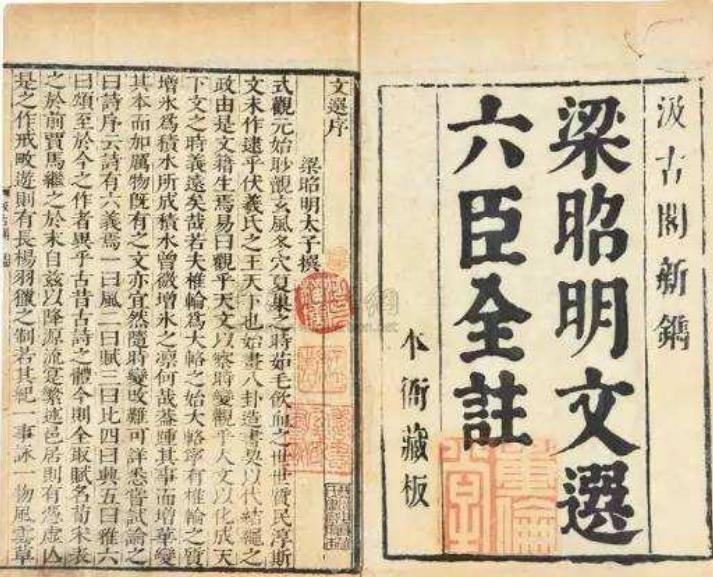 汲古閣新鐫
梁昭明文選
六臣全註
本衙藏板
文選序
梁昭明太子撰
式觀元始眇覿玄風冬穴夏巢之時茹毛飲血之世世質民淳斯
文未作逮乎伏羲氏之王天下也始畫八卦造書契以代結繩之
政由是文籍生焉易曰觀乎天文以察時變觀乎人文以化成天
下文之時義遠矣哉若夫椎輪爲大輅之始大輅寧有椎輪之質
增氷爲積水所成積水曾微增氷之凛何哉葢踵其事而增華變
其本而加厲物旣有之文亦宜然隨時變改難可詳悉嘗試論之
曰詩序云詩有六義焉一曰風二曰賦三曰比四曰興五曰雅六
曰頌至於今之作者異乎古昔古詩之體今則全取賦名荀宋表
之於前賈馬繼之於末自茲以降源流寔繁述邑居則有憑虛亾
是之作戒畋遊則有長楊羽獵之制若其紀一事詠一物風雲草